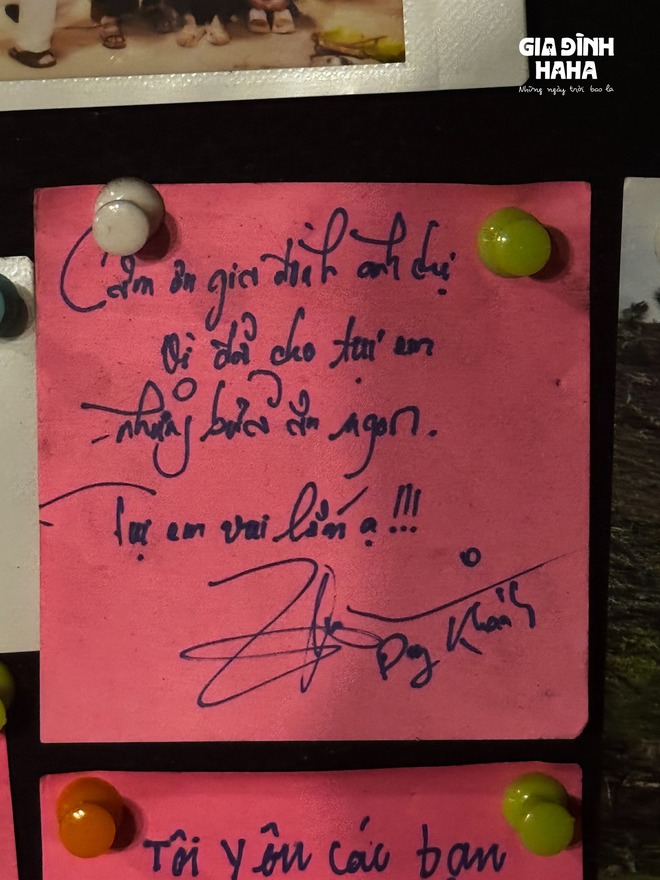 GIA ĐÌNH
HAHA
Những ngày trời bao la
Cảm ơn gia đình anh chị
Vì đã cho tụi em
những bữa ăn ngon.
Tụi em vui lắm ạ!!!
Duy Khánh
Tôi yêu các bạn